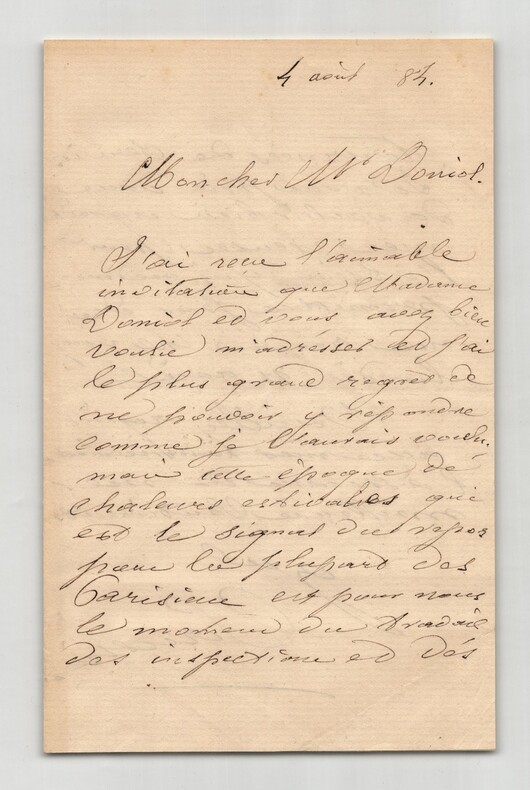 4 août 84.
Mon cher Mr Doniol.
J'ai reçu l'aimable
invitation que Madame
Doniol et vous avez bien
voulu m'adresser et j'ai
le plus grand regret de
ne pouvoir y répondre
comme je l'aurais voulu,
mais cette époque de
chaleurs estivales qui
est le signal du repos
pour la plupart des
Parisiens est pour nous
le moment du travail
des inspections et des